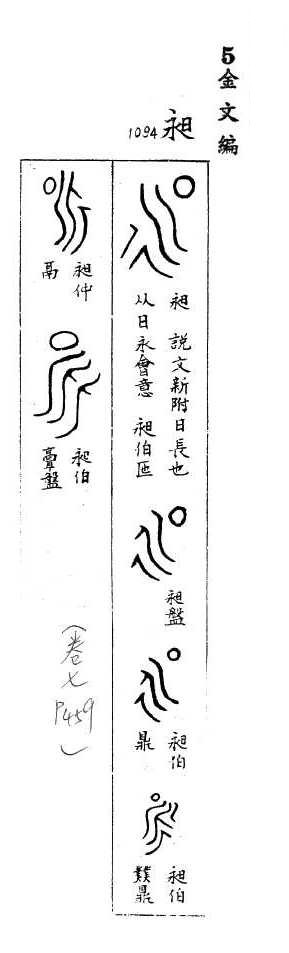 5金文編
1094 昶
昶 說文新附日長也
从日永會意 昶伯匜
昶盤
昶伯
鼎
昶伯
鼎
昶仲
鬲
昶伯
盤
(卷七
P459)